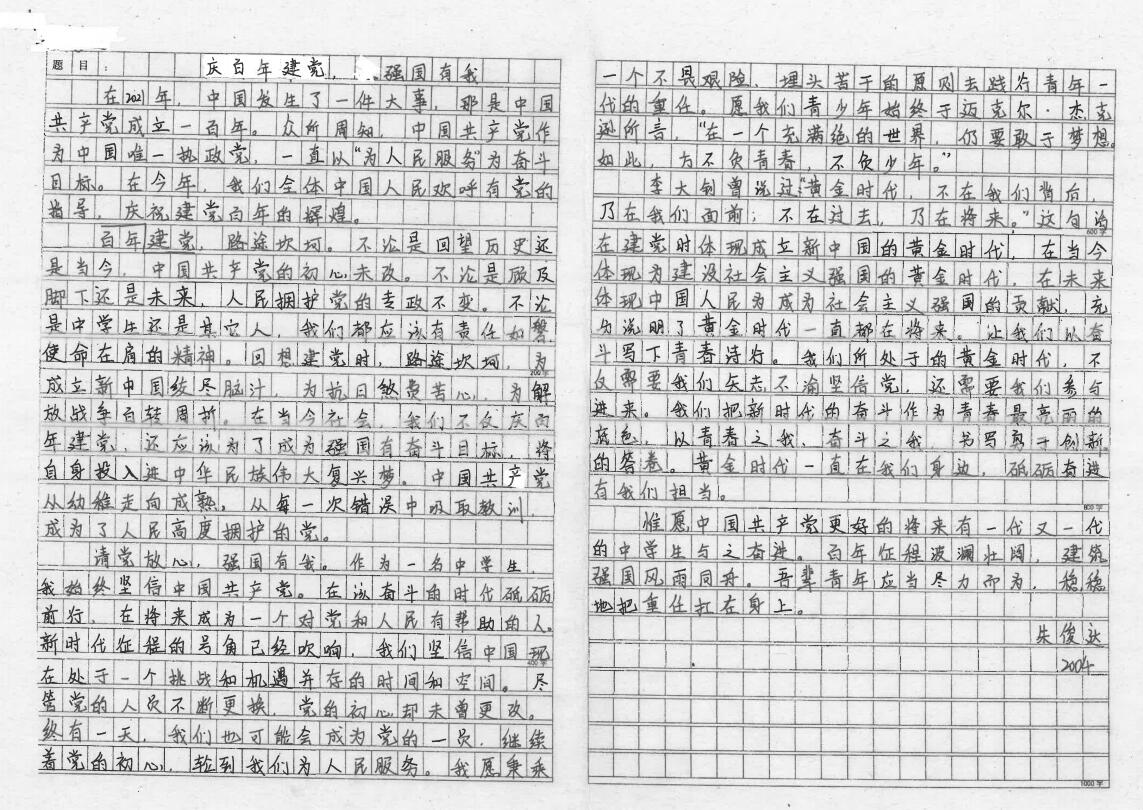 题目：
庆百年建党，强国有我
在2021年，中国发生了一件大事，那是中国
共产党成立一百年。众所周知，中国共产党作
为中国唯一执政党，一直以“为人民服务”为奋斗
目标。在今年，我们全体中国人民欢呼有党的
指导，庆祝建党百年的辉煌。
百年建党，路途坎坷。不论是回望历史还
是当今，中国共产党的初心未改。不论是顾及
脚下还是未来，人民拥护党的专政不变。不论
是中学生还是其它人，我们都应该有责任如磐
使命在肩的精神。回想建党时，路途坎坷，为
200字
成立新中国绞尽脑汁，为抗日煞费苦心，为解
放战争百转周折。在当今社会，我们不仅庆百
年建党，还应该为了成为强国有奋斗目标，将
自身投入进中华民族伟大复兴梦。中国共产党
从幼稚走向成熟，从每一次错误中吸取教训，
成为了人民高度拥护的党。
请党放心，强国有我。作为一名中学生，
我始终坚信中国共产党。在该奋斗的时代砥砺
前行，在将来成为一个对党和人民有帮助的人。
新时代征程的号角已经吹响，我们坚信中国现
400字
在处于一个挑战和机遇并存的时间和空间。尽
管党的人员不断更换，党的初心却未曾更改。
终有一天，我们也可能会成为党的一员，继续
着党的初心，轮到我们为人民服务。我愿秉乘
一个不畏艰险，埋头苦干的原则去践行青年一
代的重任。愿我们青少年始终于迈克尔·杰克
逊所言，“在一个充满绝的世界，仍要敢于梦想。
如此，方不负青春，不负少年。”
李大钊曾说过“黄金时代，不在我们背后，
乃在我们面前；不在过去，乃在将来。”这句话
600字
在建党时体现成立新中国的黄金时代，在当今
体现为建设社会主义强国的黄金时代，在未来
体现中国人民为成为社会主义强国的贡献，充
分说明了黄金时代一直都在将来。让我们以奋
斗写下青春诗行。我们所处于的黄金时代，不
仅需要我们矢志不渝坚信党，还需要我们参与
进来。我们把新时代的奋斗作为青春最亮丽的
底色，以青春之我，奋斗之我，书写勇于创新
的答卷。黄金时代一直在我们身边，砥砺奋进
有我们担当。
800字
惟愿中国共产党更好的将来有一代又一代
的中学生与之奋进。百年征程波澜壮阔，建筑
强国风雨同舟。吾辈青年应当尽力而为，稳稳
地把重任扛在身上。
朱俊达
2004
1000字